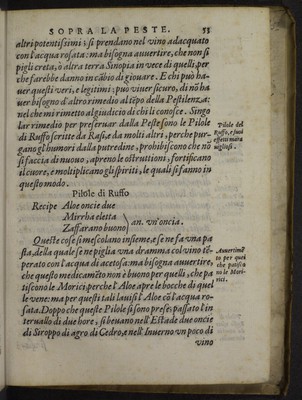 SOPRA LA PESTE. 53
altri potentissimi: si prendano nel vino adacquato
con l'acqua rosata: ma bisogna auuertire, che non si
pigli creta, ò altra terra Sinopia in vece di quelli, per
che farebbe danno in cãbio di giouare. E chi può ha-
uer questi veri, e legitimi; può viuer sicuro, di nõ ha
uer bisogno d'altro rimedio al tẽpo della Pestilenza:
nel che mi rimetto al giudicio di chi li conosce. Singo
lar rimedio per preseruar dalla Peste sono le Pilole
di Ruffo scritte da Rasi, e da molti altri, perche pur-
gano gl'humori dalla putredine, prohibiscono che nõ
si faccia di nuouo, apreno le ostruttioni, fortificano
il cuore, e moltiplicano gli spiriti, le quali si fanno in
questo modo.
Pilole di Ruffo
Recipe Aloe oncie due
Mirrha eletta
Zaffarano buono } an. vn'oncia.
Queste cose si mescolano insieme, e se ne fa vna pa
sta, della quale se ne piglia vna dramma col vino tẽ-
perato con l'acqua di acetosa: ma bisogna auuertire,
che questo medicamẽto non è buono per quelli, che pa
tiscono le Morici, perche l'Aloe apre le bocche di quel
le vene: ma per questi tali lauisi l'Aloe cõ l'acqua ro-
sata. Doppo che queste Pilole si sono prese, passato l'in
teruallo di due hore, si beuano nell'Estade due oncie
di Siroppo di agro di Cedro, e nell'Inuerno vn poco di
vino
Pilole del
Ruffo, e suoi
effetti mara
uigliosi.
Auuertimẽ
to per quei
che patisco
no le Mo-
rici.